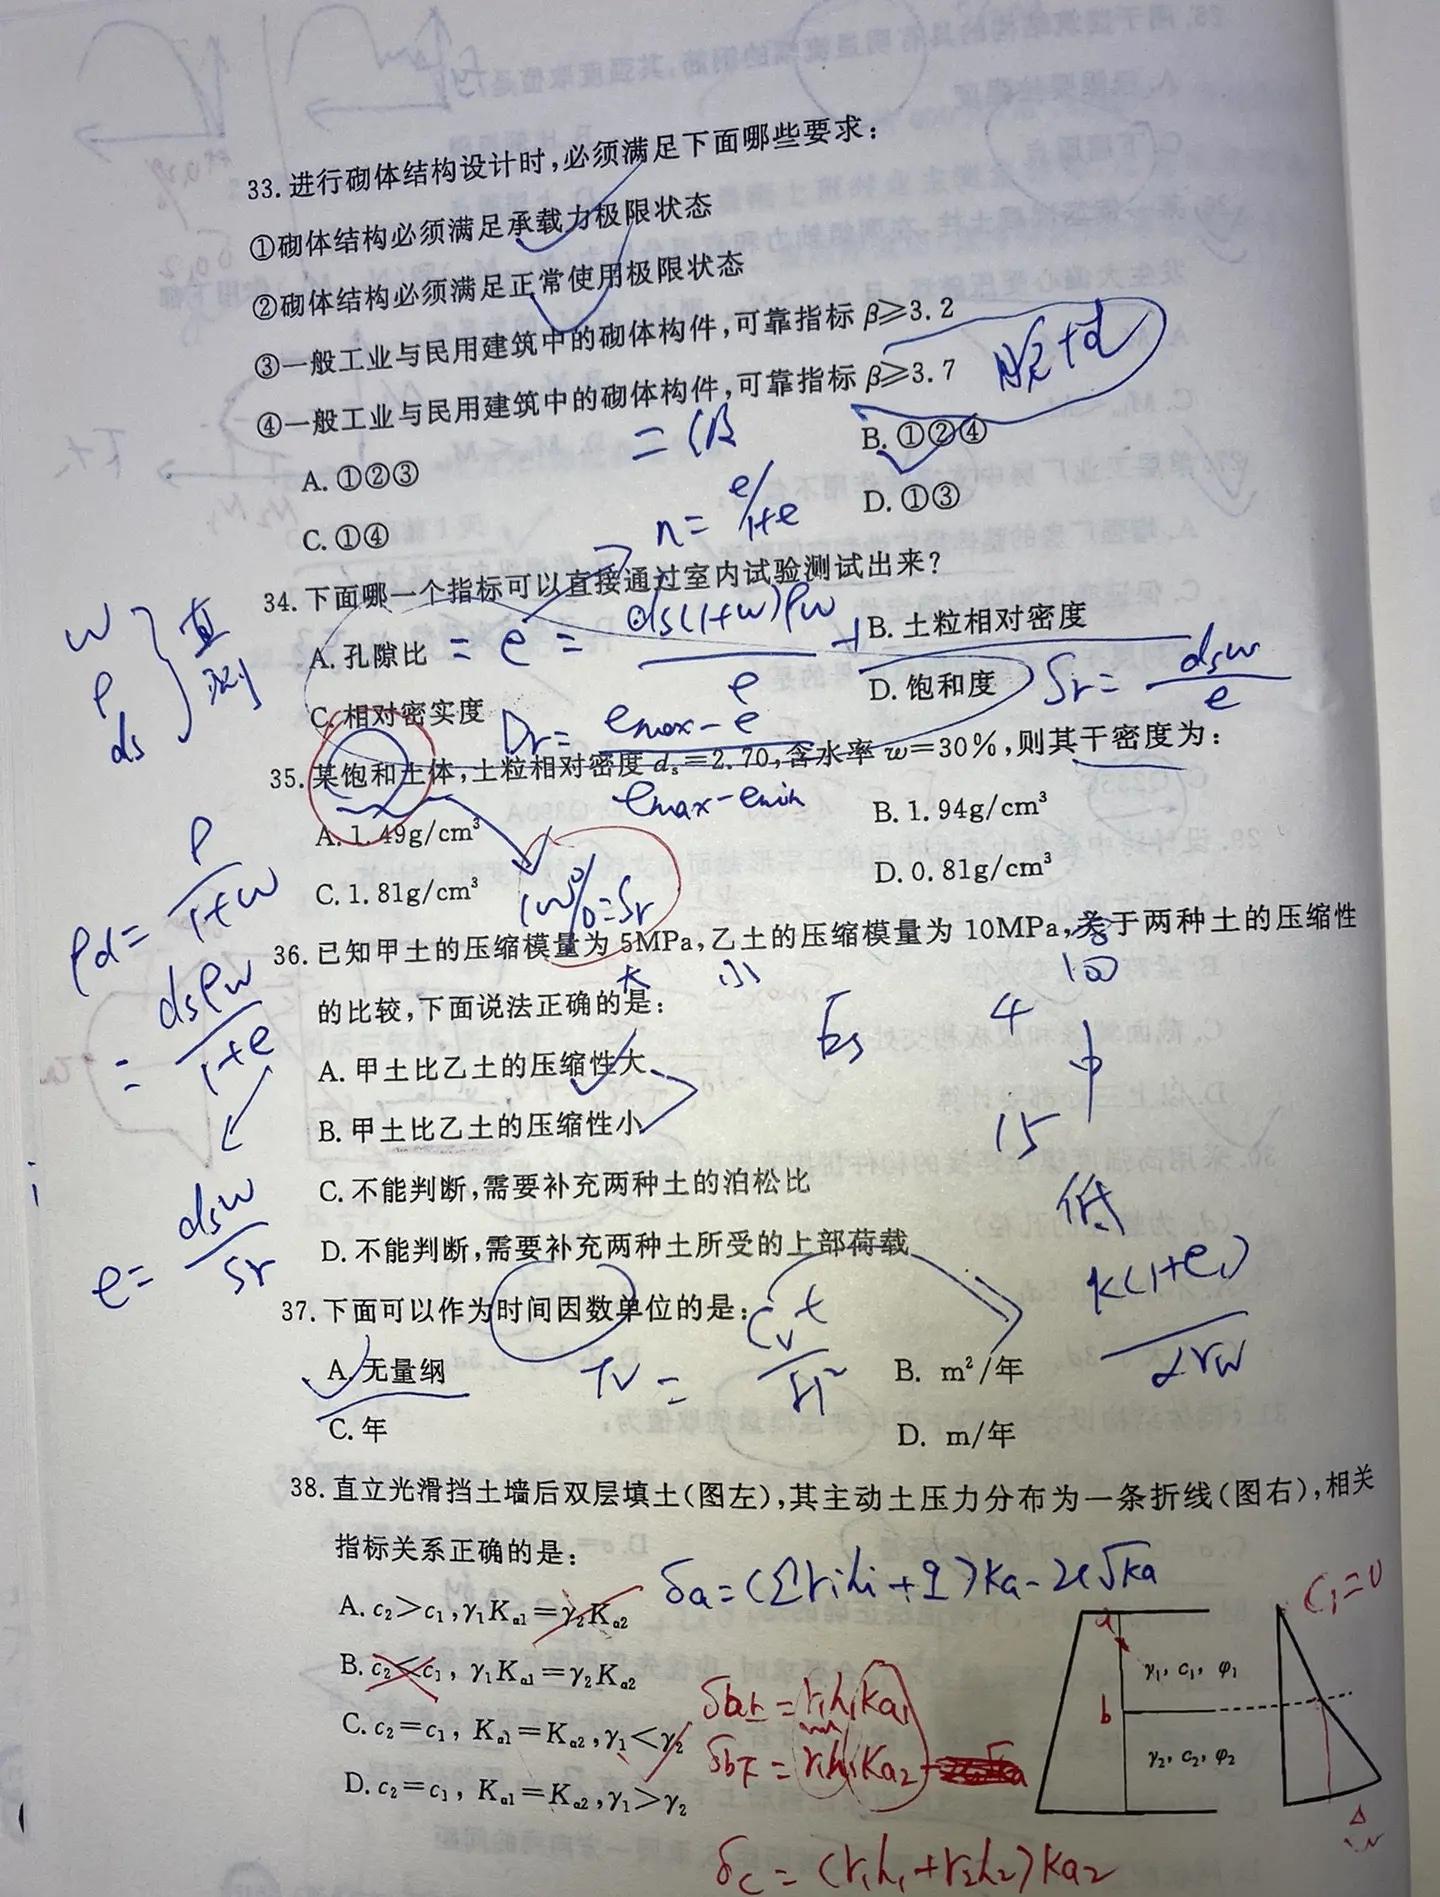 33. 进行砌体结构设计时,必须满足下面哪些要求:
①砌体结构必须满足承载力极限状态
②砌体结构必须满足正常使用极限状态
③一般工业与民用建筑中的砌体构件,可靠指标 β≥3.2
④一般工业与民用建筑中的砌体构件,可靠指标 β≥3.7
A. ①②③
B. ①②④
C. ①④
D. ①③
n= e/1+e
34. 下面哪一个指标可以直接通过室内试验测试出来?
w ρ ds } 直测
A. 孔隙比 = e = ds(1+w)ρw / ρ -1
B. 土粒相对密度
C. 相对密实度 Dr= emax-e / emax-emin
D. 饱和度 Sr= dsw / e
35. 某饱和土体,土粒相对密度 dₛ=2.70,含水率 w=30%,则其干密度为:
A. 1.49g/cm³
B. 1.94g/cm³
C. 1.81g/cm³
D. 0.81g/cm³
100%=Sr
ρd= ρ / 1+w
= dsρw / 1+e
e= dsw / Sr
36. 已知甲土的压缩模量为 5MPa,乙土的压缩模量为 10MPa,关于两种土的压缩性
大 小
的比较,下面说法正确的是:
Es 4 中 15 低
A. 甲土比乙土的压缩性大
B. 甲土比乙土的压缩性小
C. 不能判断,需要补充两种土的泊松比
D. 不能判断,需要补充两种土所受的上部荷载
37. 下面可以作为时间因数单位的是:
Tv = Cv t / H²
k(1+e₁) / αrw
A. 无量纲
B. m²/年
C. 年
D. m/年
38. 直立光滑挡土墙后双层填土(图左),其主动土压力分布为一条折线(图右),相关
指标关系正确的是:
δa=(Σrihi+q)Ka-2c√Ka
A. c₂>c₁,γ₁Kₐ₁=γ₂Kₐ₂
B. c₂<c₁, γ₁Kₐ₁=γ₂Kₐ₂
C. c₂=c₁, Kₐ₁=Kₐ₂,γ₁<γ₂
D. c₂=c₁, Kₐ₁=Kₐ₂,γ₁>γ₂
δb上=r₁h₁Ka₁
δb下=r₁h₁Ka₂
δc=(r₁h₁+r₂h₂)Ka₂
a
C₁=0
γ₁, c₁, φ₁
b
γ₂, c₂, φ₂